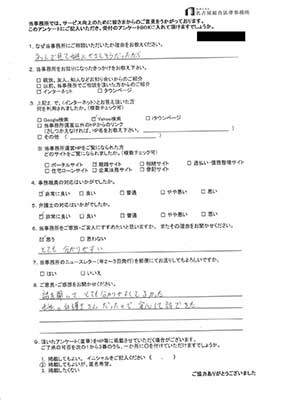 名古屋総合法律事務所
当事務所では、サービス向上のために皆さまからのご意見をうかがっております。
このアンケートにご記入いただき、受付のアンケートBOXに入れて頂けますでしょうか。
1. なぜ当事務所にご相談いただいたか理由をお教えください。
2. 当事務所をお知りになったきっかけをお教え下さい。
□ 親族、友人、知人などお知り合いからのご紹介
□ 以前、当事務所でご相談を頂いた方からのご紹介
□ インターネット □ タウンページ
3. 上記2. で、《インターネット》とお答え頂いた方
何を利用されましたか。(複数チェック可)
□ Google検索 ☑ Yahoo検索 □ iタウンページ
□ 当事務所運営以外のHPからのリンク
(さしつかえなければ、HP名をお教え下さい。 )
□ その他 ( )
※ 当事務所運営HPをご覧になられた方
どのサイトをご覧になられましたか。(複数チェック可)
□ ポータルサイト ☑ 離婚サイト □ 相続サイト □ 過払い・債務整理サイト
□ 住宅ローンサイト □ 企業法務サイト □ 登記サイト
4. 事務職員の対応はいかがでしたか。
☑ 非常に良い □ 良い □ 普通 □ やや悪い □ 悪い
5. 弁護士の対応はいかがでしたか。
☑ 非常に良い □ 良い □ 普通 □ やや悪い □ 悪い
6. 当事務所をご家族・ご友人にすすめたいと思いますか。 またその理由をお聞かせください。
☑ 思う □ 思わない
とても分かりやすい
7. 当事務所のニュースレター(年2~3回発行)を郵便にてお送りしてもよろしいですか。
□ はい □ いいえ
8. ご意見・ご感想をお聞かせください。
9. 注)いただきましたアンケート(直筆)をHP等に掲載させていただく場合がございます。
ご了承の可否を次の1から3番のうち、一か所に〇を付けていただけますでしょうか。
1. 掲載してもよい。 イニシャルをご記入ください ( . )
2. 掲載してもよいが、匿名希望。
3. 掲載したくない
ご協力ありがとうございました